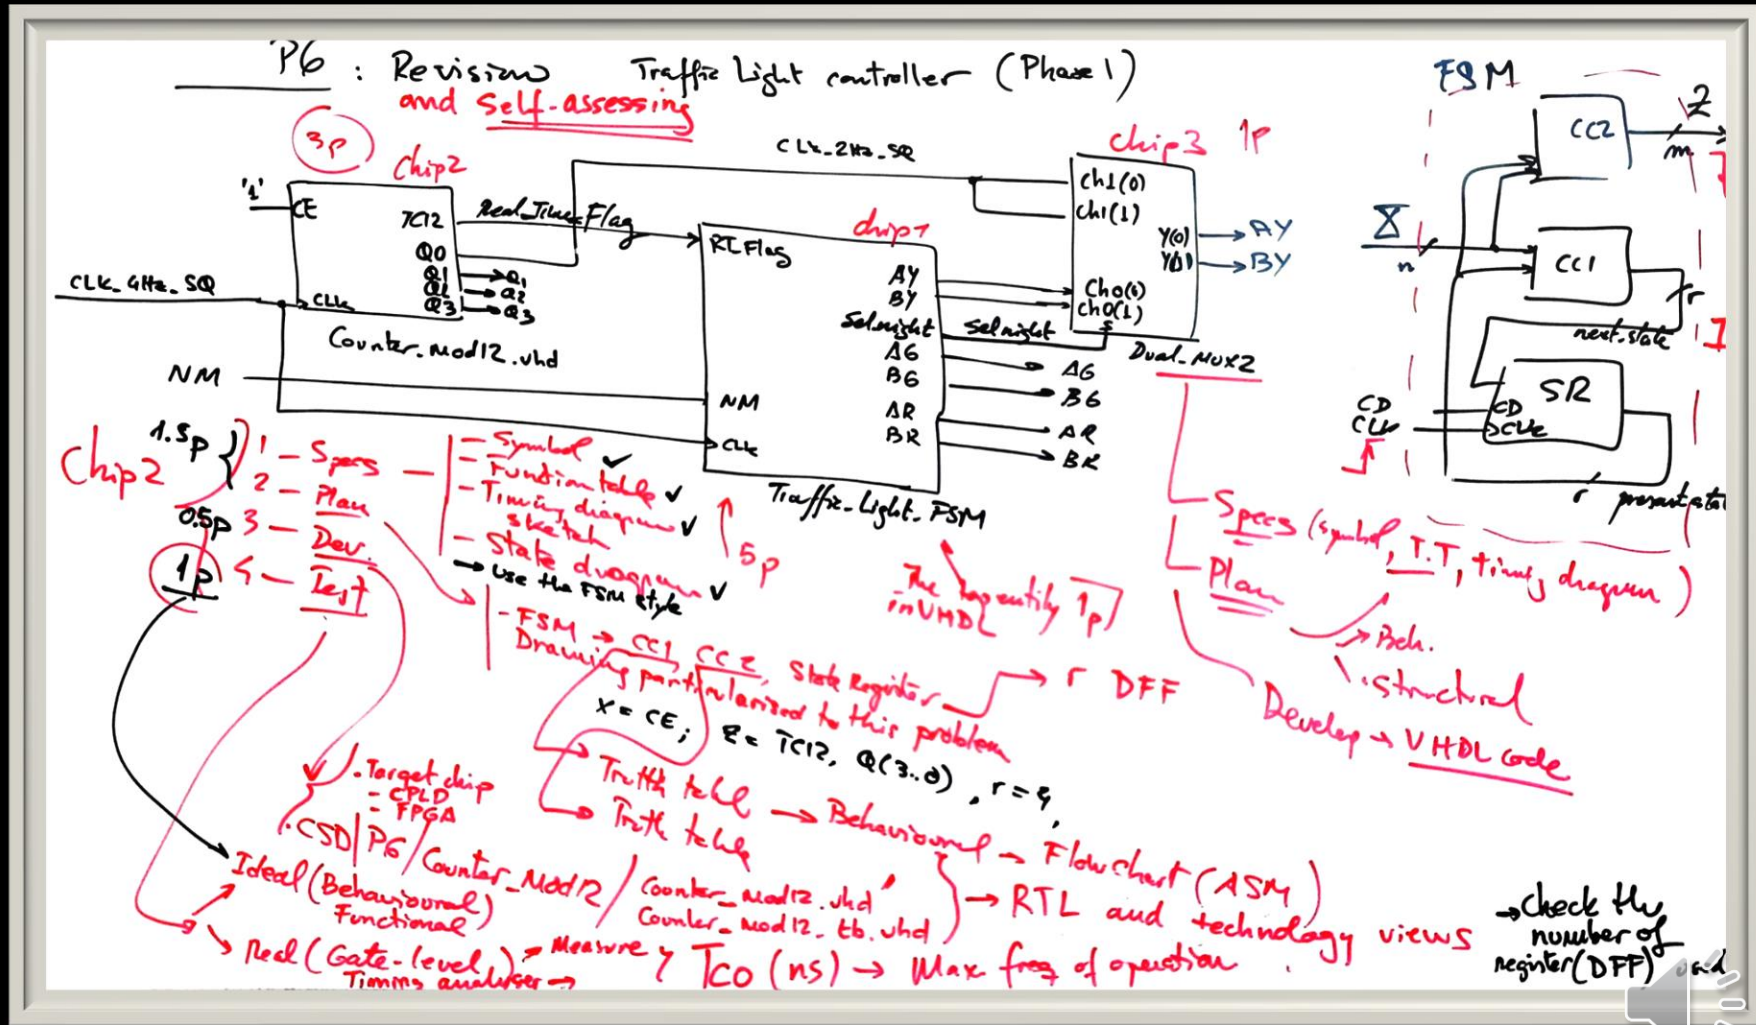 P6 : Revision Traffic Light controller (Phase 1)
and Self-assessing
3p
Chip2
'1'
CE
TC12
Q0
Q1
Q2
Q3
CLK
Q1
Q2
Q3
Real_Time_Flag
CLK_4Hz_SQ
Counter_mod12.vhd
NM
CLK_2Hz_SQ
chip1
RT_Flag
AY
BY
Selnight
AG
BG
AR
BR
NM
CLK
Selnight
AG
BG
AR
BR
Traffic_Light_FSM
5p
The top entity 1p
in VHDL
Chip3 1p
Ch1(0)
Ch1(1)
Y(0)
Y(1)
AY
BY
Ch0(0)
Ch0(1)
Dual_MUX2
FSM
CC2
Z
m
X
n
CC1
r
next_state
SR
CD
CLK
CD
CLK
r
Chip2
1.5p
1 - Specs
2 - Plan
0.5p 3 - Dev.
1p 4 - Test
- Symbol
- Function table
- Timing diagram
sketch
- State diagram
→ Use the FSM style
- FSM → CC1, CC2, State Register → r DFF
Drawing particularised to this problem
X = CE; Z = TC12, Q(3..0), r = 4,
Truth table → Behavioural → Flowchart (ASM)
Truth table
Specs (symbol, T.T, timing diagram)
Plan
→ Beh.
structural
Develop → VHDL code
. Target chip
- CPLD
- FPGA
. CSD/P6/Counter_Mod12/
Counter_mod12.vhd
Counter_mod12_tb.vhd
→ RTL and technology views
→ check the
number of
register (DFF)
Ideal (Behavioural)
Functional
Real (Gate-level) → Measure
Timing analyser →
Tco (ns) → Max freq of operation.